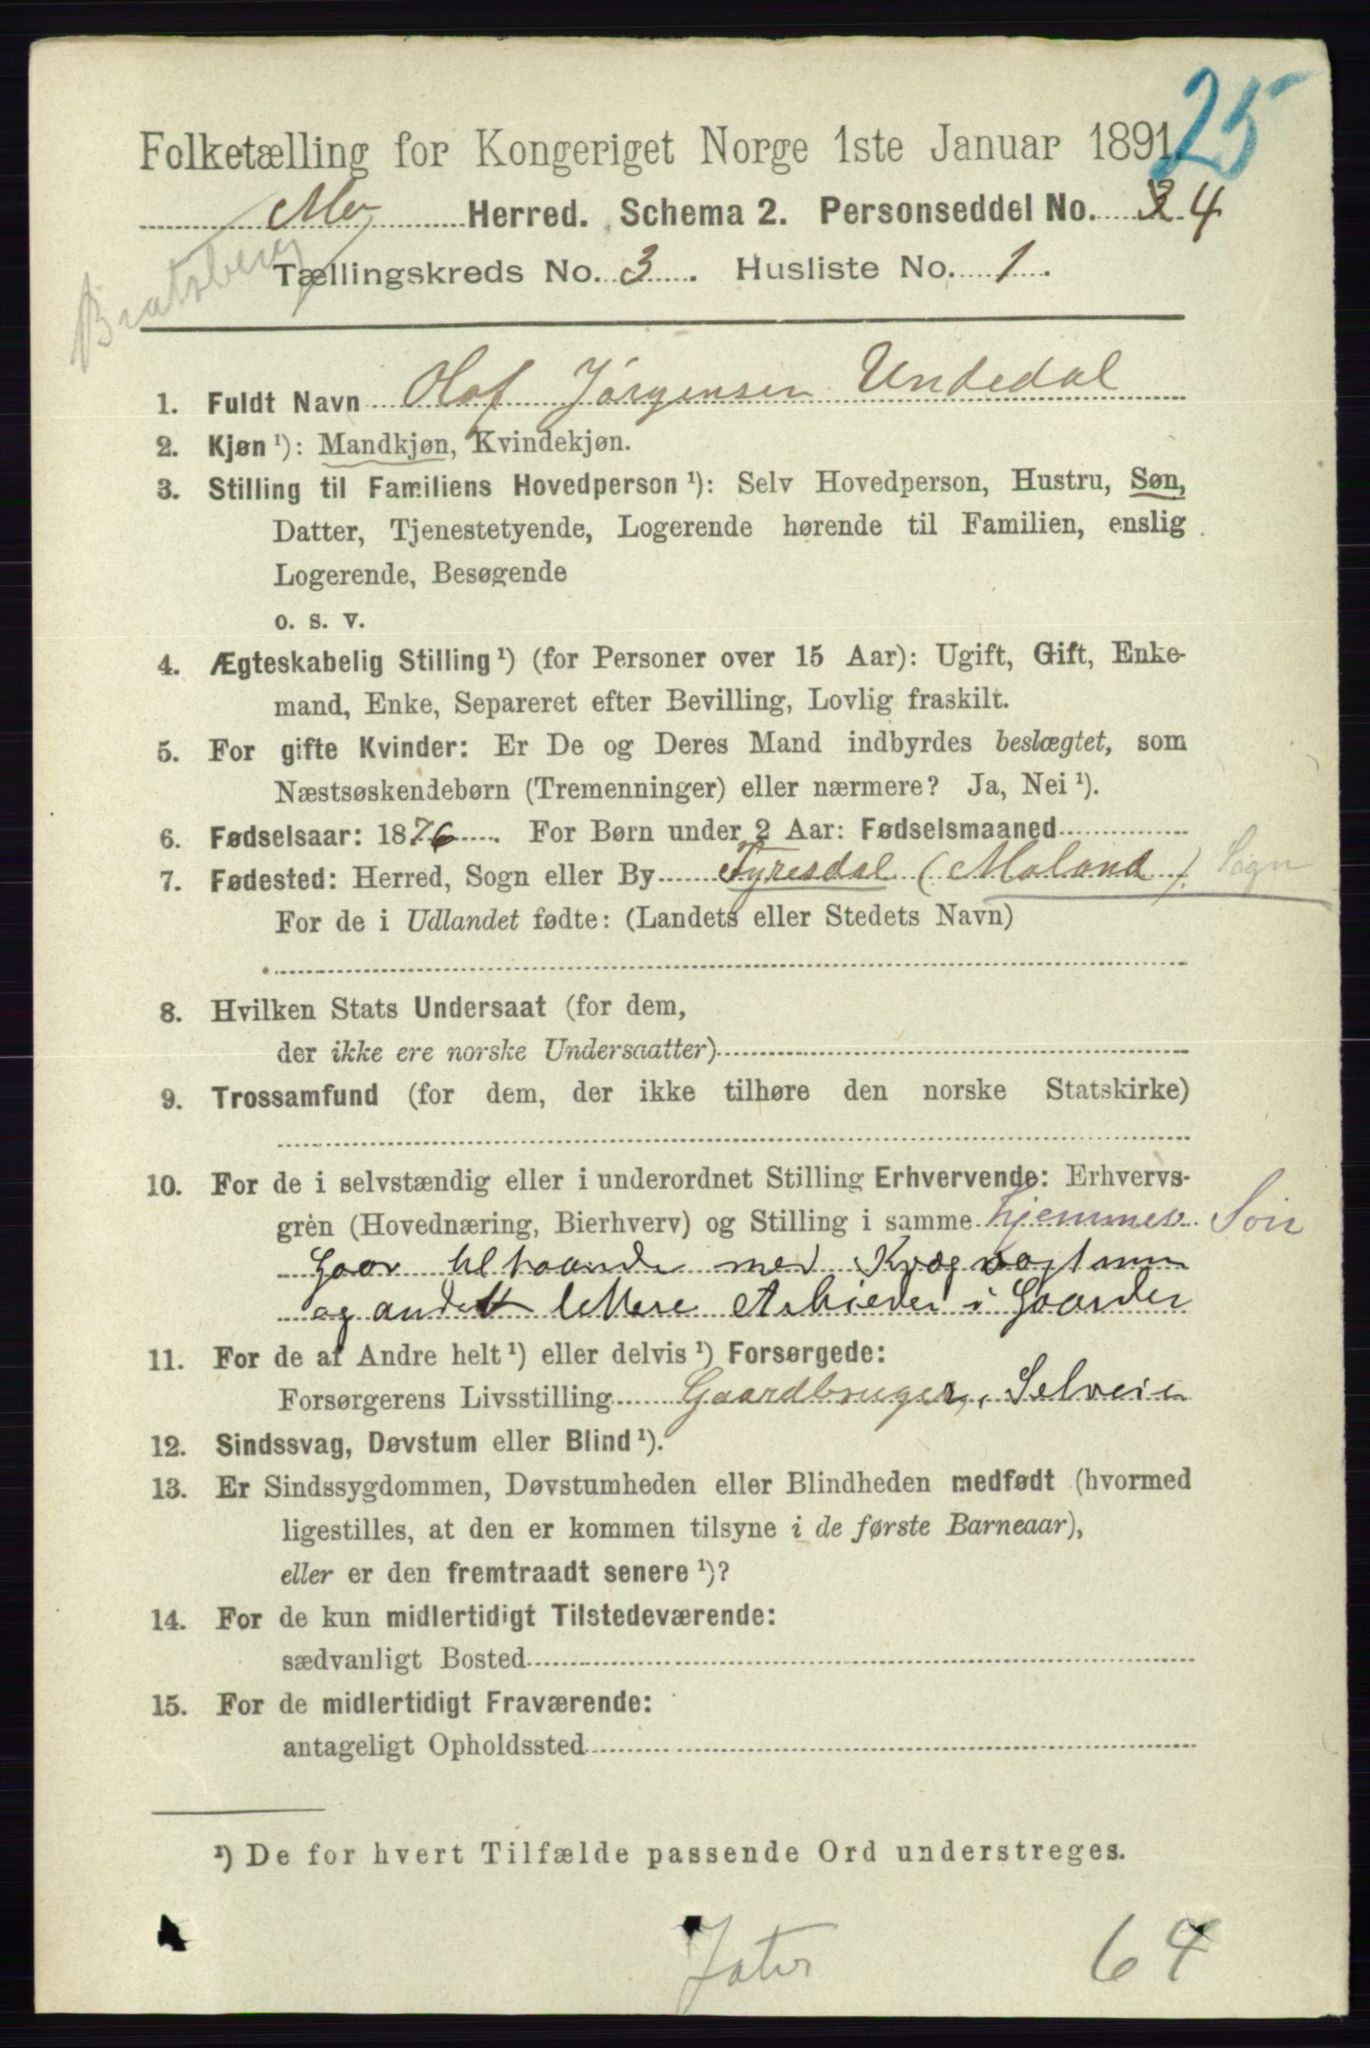 25
Folketælling for Kongeriget Norge 1ste Januar 1891.
Mo Herred. Schema 2. Personseddel No. 4
Bratsberg
Tællingskreds No. 3. Husliste No. 1.
1. Fuldt Navn Olaf Jørgensen Undedal
2. Kjøn ¹): Mandkjøn, Kvindekjøn.
3. Stilling til Familiens Hovedperson ¹): Selv Hovedperson, Hustru, Søn,
Datter, Tjenestetyende, Logerende hørende til Familien, enslig
Logerende, Besøgende
o. s. v.
4. Ægteskabelig Stilling ¹) (for Personer over 15 Aar): Ugift, Gift, Enke-
mand, Enke, Separeret efter Bevilling, Lovlig fraskilt.
5. For gifte Kvinder: Er De og Deres Mand indbyrdes beslægtet, som
Næstsøskendebørn (Tremenninger) eller nærmere? Ja, Nei ¹).
6. Fødselsaar: 1876. For Børn under 2 Aar: Fødselsmaaned
7. Fødested: Herred, Sogn eller By Tyresdal (Moland). Sogn
For de i Udlandet fødte: (Landets eller Stedets Navn)
8. Hvilken Stats Undersaat (for dem,
der ikke ere norske Undersaatter)
9. Trossamfund (for dem, der ikke tilhøre den norske Statskirke)
10. For de i selvstændig eller i underordnet Stilling Erhvervende: Erhvervs-
gren (Hovednæring, Bierhverv) og Stilling i samme hjemmev. Søn
Gaar tilhaande med Kvægrøgt
og andet lettere Arbieder i Gaarden
11. For de af Andre helt ¹) eller delvis ¹) Forsørgede:
Forsørgerens Livsstilling Gaardbruger, Selveier
12. Sindssvag, Døvstum eller Blind ¹).
13. Er Sindssygdommen, Døvstumheden eller Blindheden medfødt (hvormed
ligestilles, at den er kommen tilsyne i de første Barneaar),
eller er den fremtraadt senere ¹)?
14. For de kun midlertidigt Tilstedeværende:
sædvanligt Bosted
15. For de midlertidigt Fraværende:
antageligt Opholdssted
¹) De for hvert Tilfælde passende Ord understreges.
64